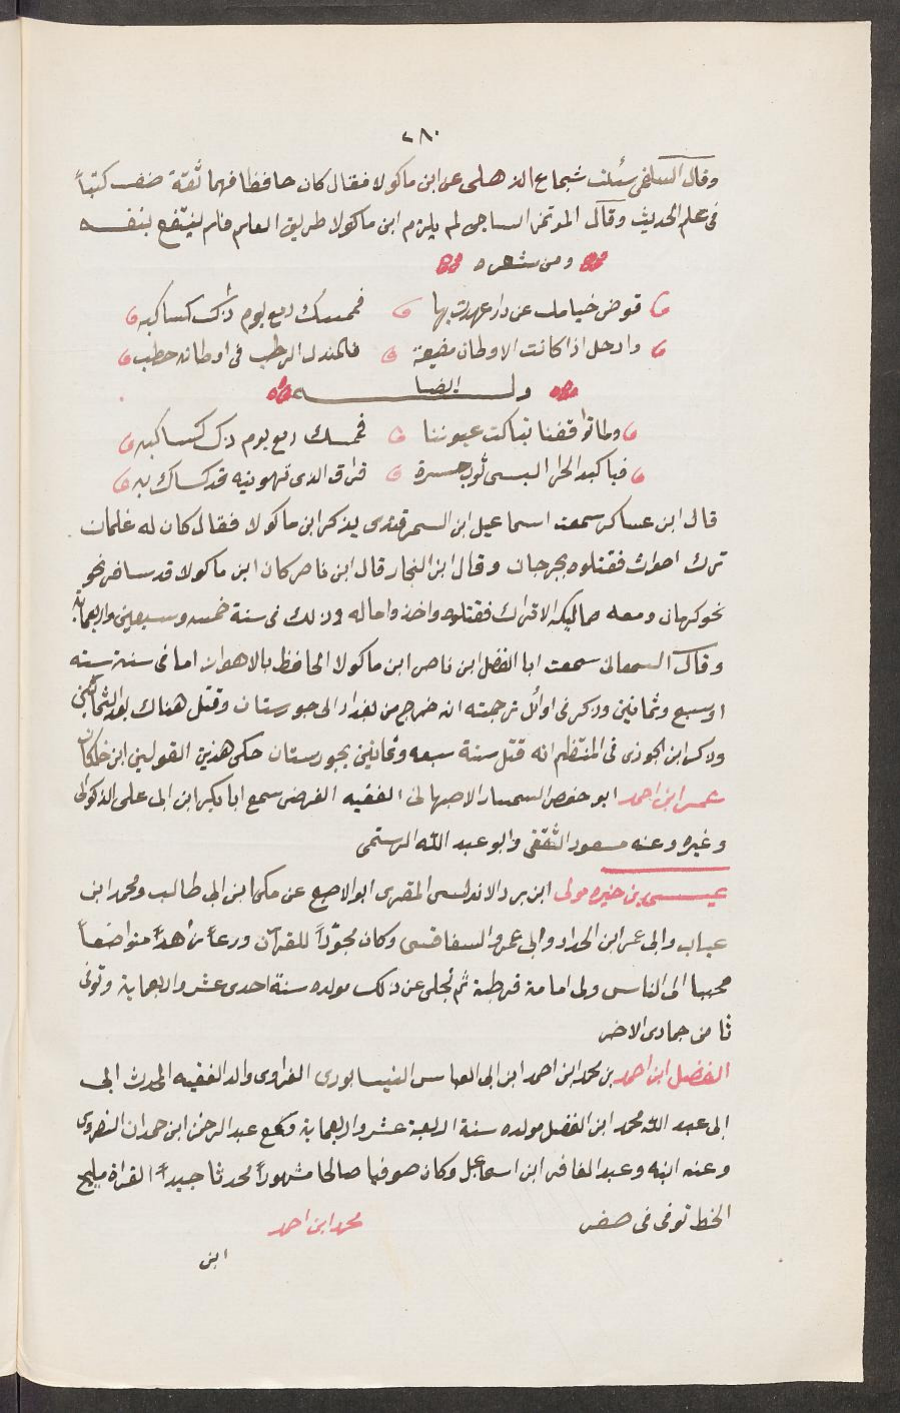 ٢٨٠
وقال السلفي سئلت شجاع الذهلي عن ابن ماكولا فقال كان حافظا فهما ثقة صنف كتباً
في علم الحديث وقال الموتمن الساجي لم يلزم ابن ماكولا طريق العلم فلم ينتفع بنفسه
ومن شعره
قوض خيامك عن دار عهدت بها
وارحل اذا كانت الاوطان مضيعة فالمندل الرطب في اوطانه حطب
وله ايضا
ولما تواقفنا تباكت عيوننا فممسك دمع يوم ذاك كساكبه
فيا كبد الحرا البسي ثوب حسرة فراق الذي تهوينه قد كساك به
قال ابن عساكر سمعت اسماعيل ابن السمرقندي يذكر ابن ماكولا فقال كان له غلمان
ترك احداث فقتلوه بجرجان وقال ابن النجار قال ابن ناصر كان ابن ماكولا قد سافر نحو
نحو كرمان ومعه مماليكه الاتراك فقتلوه واخذوا ماله وذلك في سنة خمسه وسبعين واربعمائة
وقال السمعاني سمعت ابا الفضل ابن ناصر ابن ماكولا الحافظ بالاهواز اما في سنة سته
او سبع وثمانين وذكر في اوائل ترجمته انه خرج من بغداد الى خوزستان وقتل هناك بعد الثمانين
وذكر ابن الجوزي في المنتظم انه قتل سنة سبعه وثمانين بخورستان حكى هذين القولين ابن خلكان
عمر ابن احمد ابو حفص السمسار الاصبهاني الفقيه الفرضي سمع ابا بكر ابن ابي علي الذكواني
وغيره وعنه مسعود الثقفي وابو عبد الله الرستمي
عيسى بن خيره مولى ابن برد الاندلسي المقري ابو الاصبغ عن مكي ابن ابي طالب ومحمد ابن
عباب وابي عمر ابن الحداد وابي عمرو السفاقسي وكان مجوّداً للقرآن ورعاً زاهداً متواضعاً
محببا الى الناس ولى امامة قرطبة ثم تخلى عن ذلك مولده سنة احدى عشر واربعماية وتوفي
ثامن جمادى الاخر
الفضل ابن احمد بن محمد ابن احمد ابن ابي العباس النيسابوري الفراوي والد الفقيه المحدث ابي
ابي عبد الله محمد ابن الفضل مولده سنة اربعة عشر واربعماية وسمع عبد الرحمن ابن حمدان النصروي
وعنه ابنه وعبد الغافر ابن اسماعيل وكان صوفيا صالحا مشهوراً محدثا جيداً القراة مليح
الخط توفى في صفر محمد ابن احمد
ابن